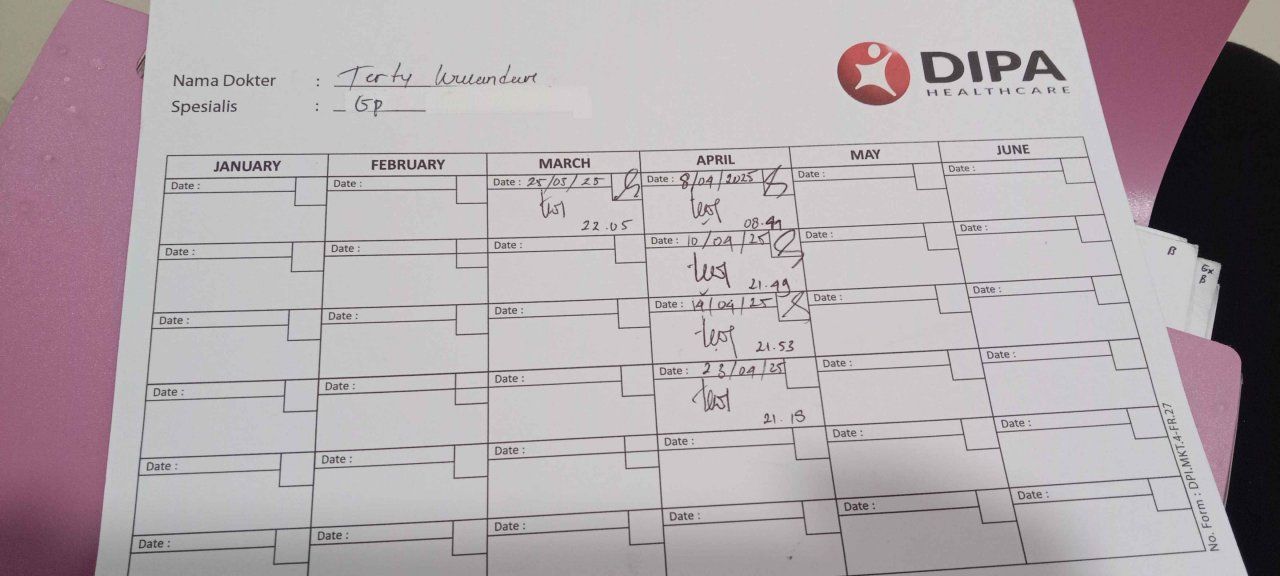 DIPA
HEALTHCARE
Nama Dokter : Terty
Spesialis : Gp
JANUARY FEBRUARY MARCH APRIL MAY JUNE
Date : Date : Date : 25/03/25 Date : 8/04/2025 Date : Date :
22.05 08.49
Date : Date : Date : Date : 10/04/25 Date : Date :
21.49
Date : Date : Date : Date : 14/04/25 Date : Date :
21.53
Date : Date : Date : Date : 23/04/25 Date : Date :
21.18
Date : Date : Date : Date : Date : Date :
Date : Date : Date : Date : Date : Date :
No. Form : DPI.MKT.4-FR.27